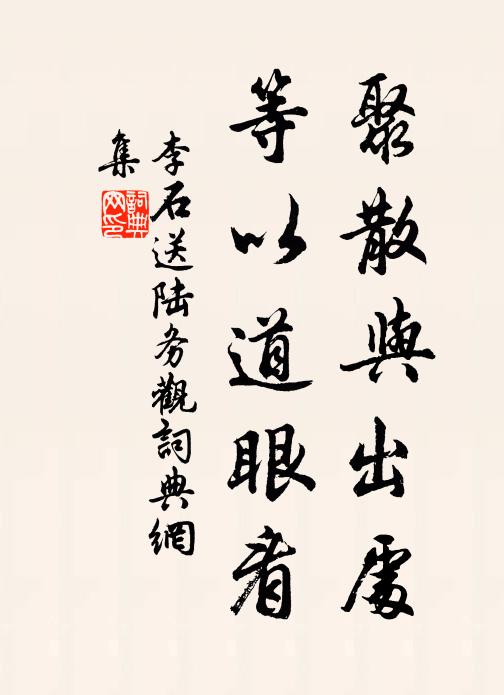 聚散與出處
等以道眼看
李石送陆务觀詞典網
集
詞典网印